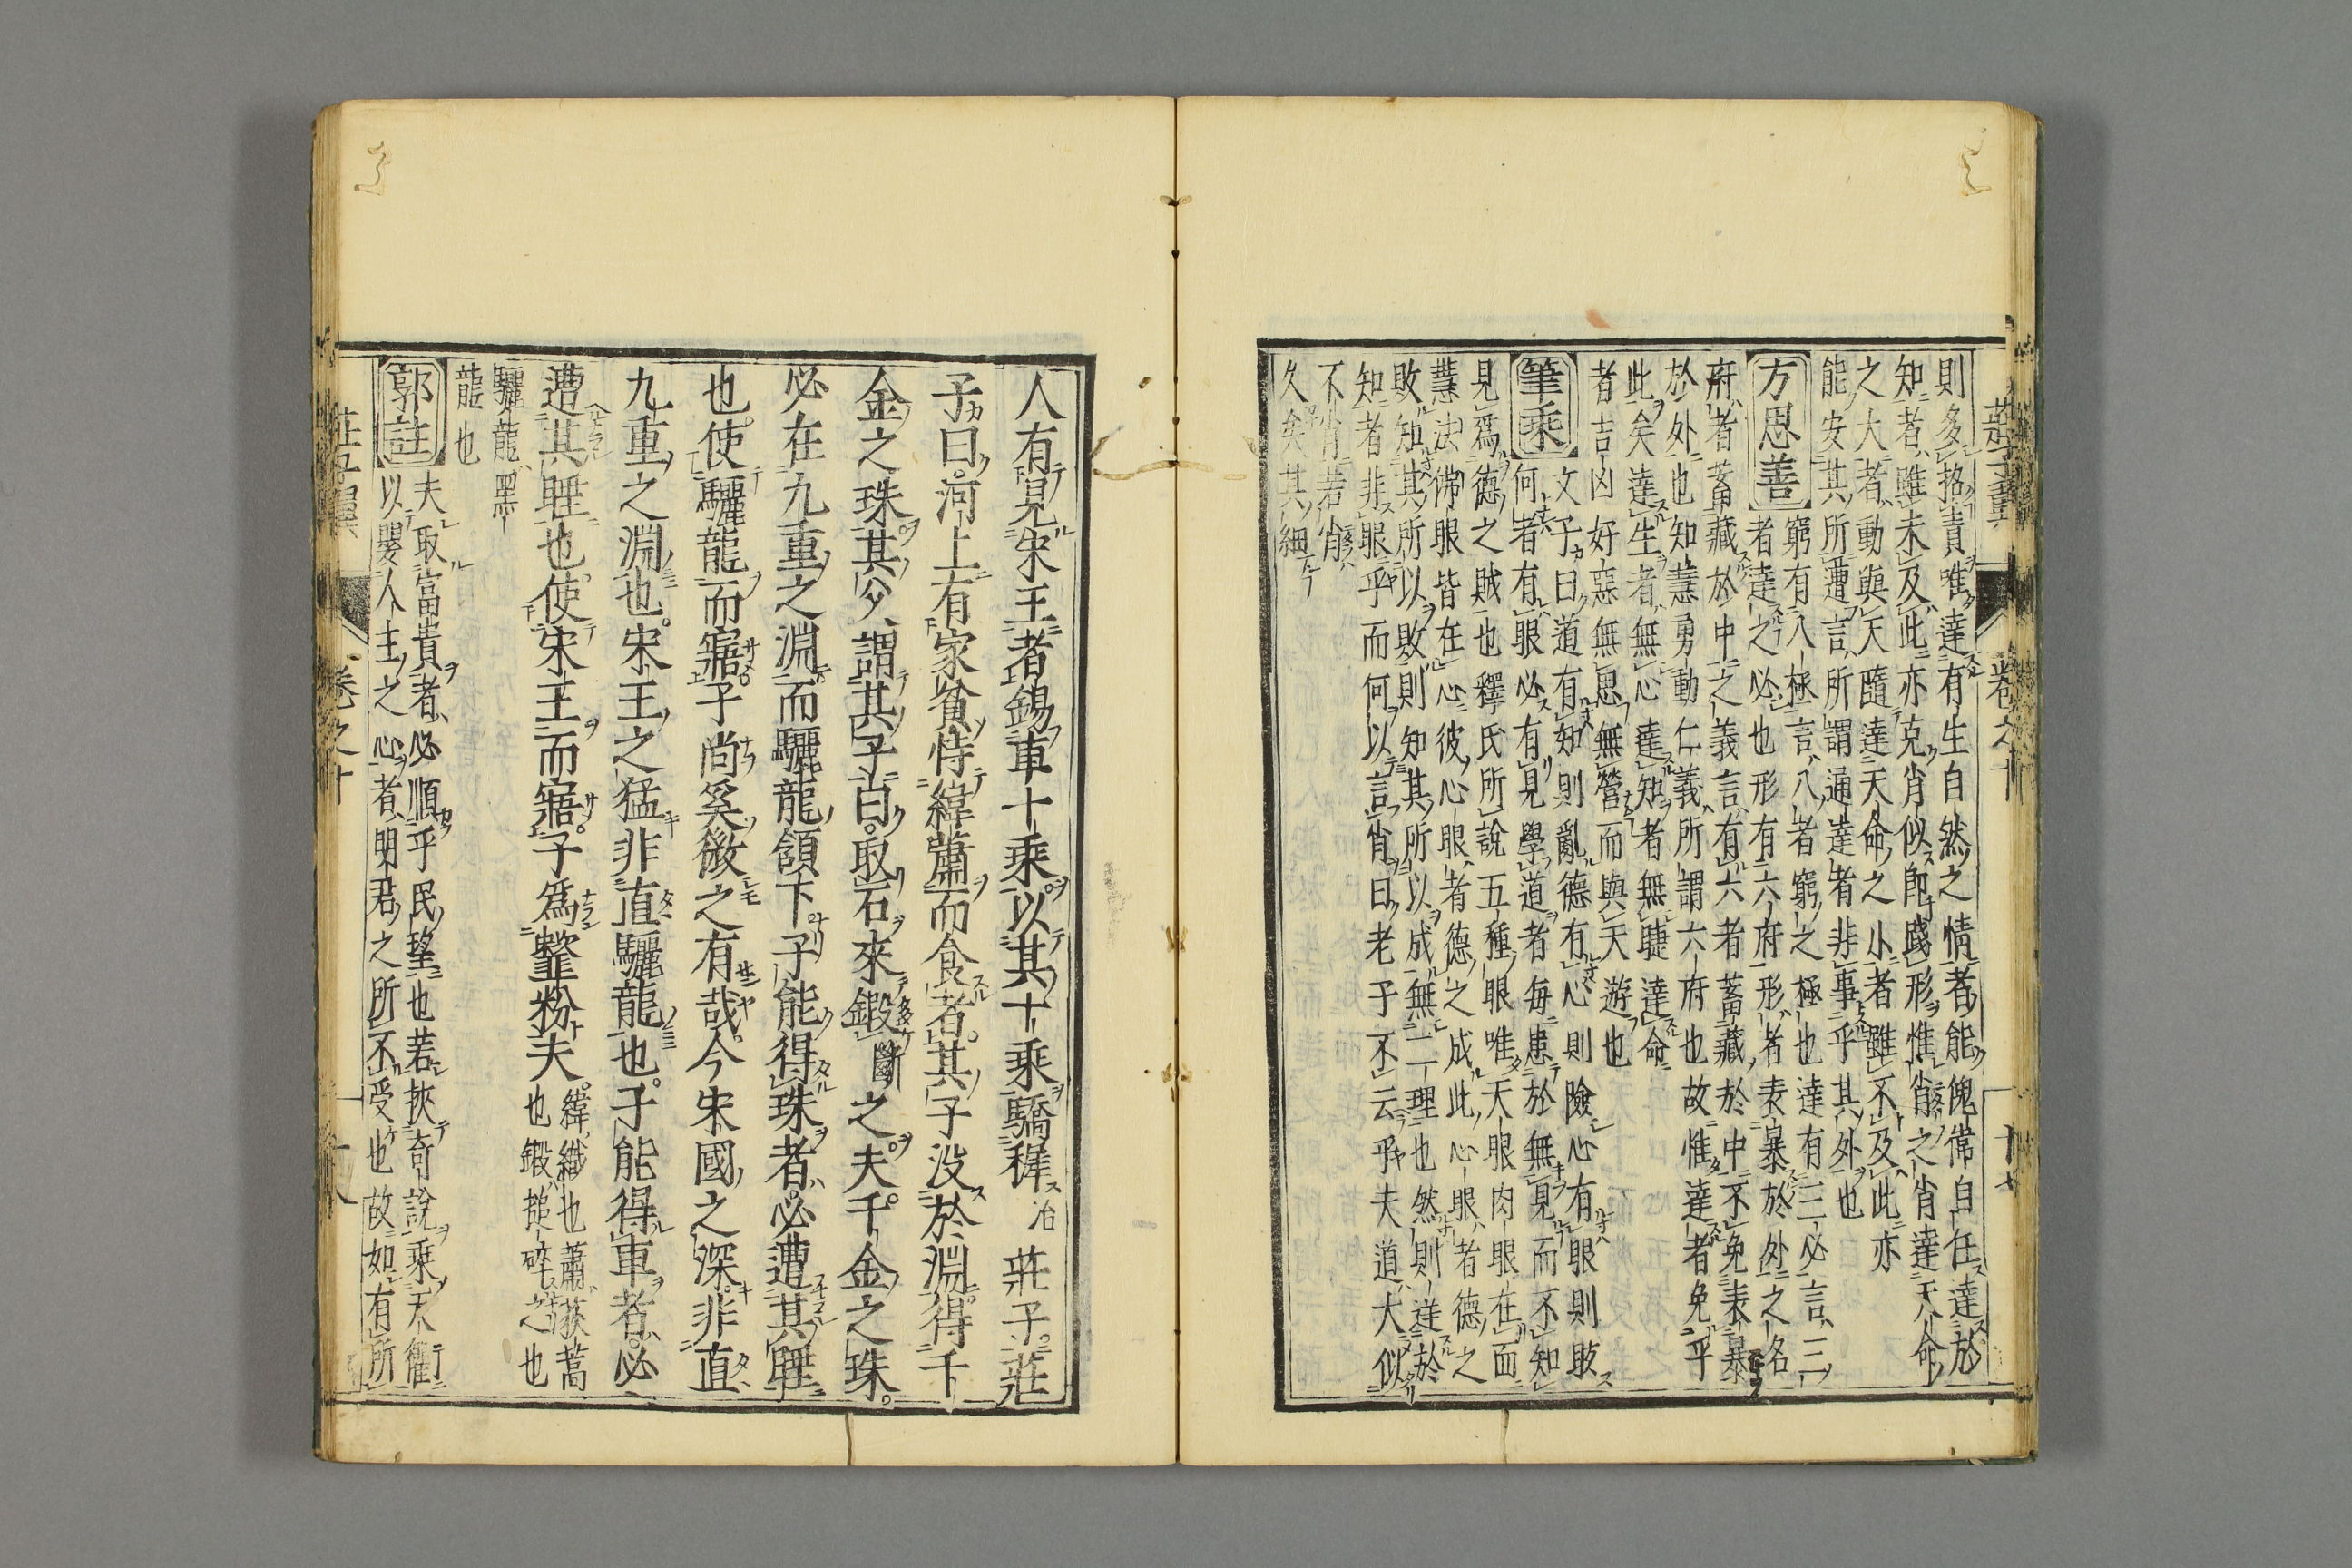 則多捨責唯達有生自然之情者能傀常自任達於
知者雖未及此亦克肖似即踐形惟肖之肖達大命
之大者動與天隨達天命之小者雖不及此亦
能安其所遭言所謂通達者非事乎其外也
方思善
窮有八極言八者窮之極也達有三必言三
者達之必也形有六府形者表暴於外之名
府者蓄藏於中之義言有六者蓄藏於中不免表暴
於外也知慧勇動仁義所謂六府也故惟達者免乎
此矣達生者無心達知者無𥈭達命
者吉凶好惡無思無營而與天遊也
筆乘
文子曰道有知則亂德有心則險心有眼則眩
何者有眼必有見學道者每患於無見而不知
見爲德之賊也釋氏所說五種眼唯天眼肉眼在面
慧法佛眼皆在心彼心眼者德之成此心眼者德之
敗知其所以敗則知其所以成無二理也然則達於
知者非眼乎而何以言肖曰老子不云乎夫道大似
不肖若肖
久矣其細
人有見宋王者錫車十乘以其十乘驕穉治莊子莊
子曰河上有家貧恃緯蕭而食者其子沒於淵得千
金之珠其父謂其子曰取石來鍛斷之夫千金之珠
必在九重之淵而驪龍頷下子能得珠者必遭其睡
也使驪龍而寤子尚奚微之有哉今宋國之深非直
九重之淵也宋王之猛非直驪龍也子能得車者必
遭其睡也使宋王而寤子爲韲粉夫
緯織也蕭荻蒿
也鍛搥碎之也
驪龍黑
龍也
郭註
夫取富貴者必順乎民望也若挾奇說乘天衢
以嬰人主之心者明君之所不受也故如有所
莊子翼
卷之十
十七